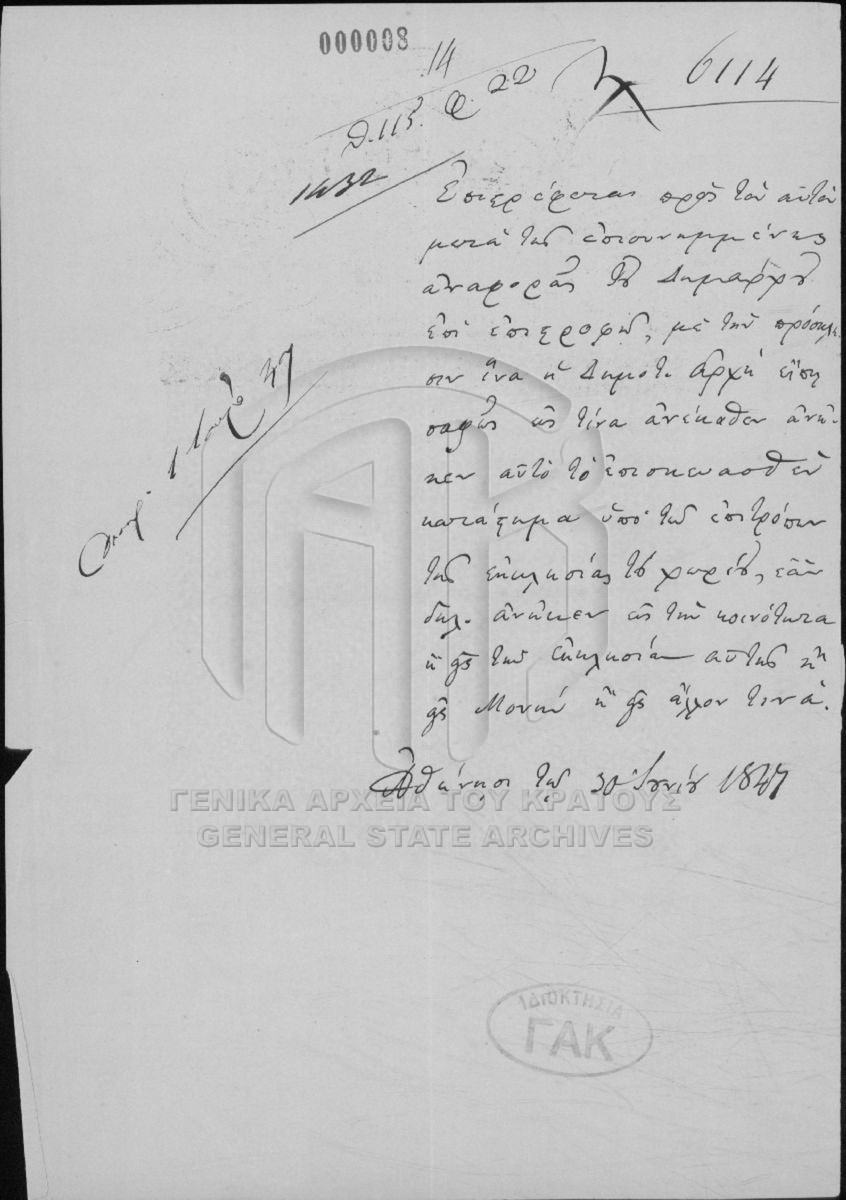 000008
14
Θ. 113. Φ. 22
6114
1432
Ἐπιστρέφεται πρὸς τὸν αὐτὸν
μετὰ τῆς ἐπισυνημμένης
ἀναφορᾶς τοῦ Δημάρχου
ἐπὶ ἐπιστροφῇ, μὲ τὴν πρόσκλη
σιν ἵνα ἡ Δημοτ. Ἀρχὴ εἴπῃ
σαφῶς εἰς τίνα ἀνέκαθεν ἀνῆ-
κεν αὐτὸ τὸ ἐπισκευασθὲν
κατάστημα ὑπὸ τῶν ἐπιτρόπων
τῆς ἐκκλησίας τοῦ χωρίου, ἐὰν
δηλ. ἀνῆκεν εἰς τὴν κοινότητα
ἢ εἰς τὴν ἐκκλησίαν αὐτῆς ἢ
εἰς Μονὴν ἢ εἰς ἄλλον τινά.
Ἀθήνησι τῇ 30 Ἰουνίου 1847
1 47
ΓΕΝΙΚΑ ΑΡΧΕΙΑ ΤΟΥ ΚΡΑΤΟΥΣ
GENERAL STATE ARCHIVES
ΙΔΙΟΚΤΗΣΙΑ
ΓΑΚ